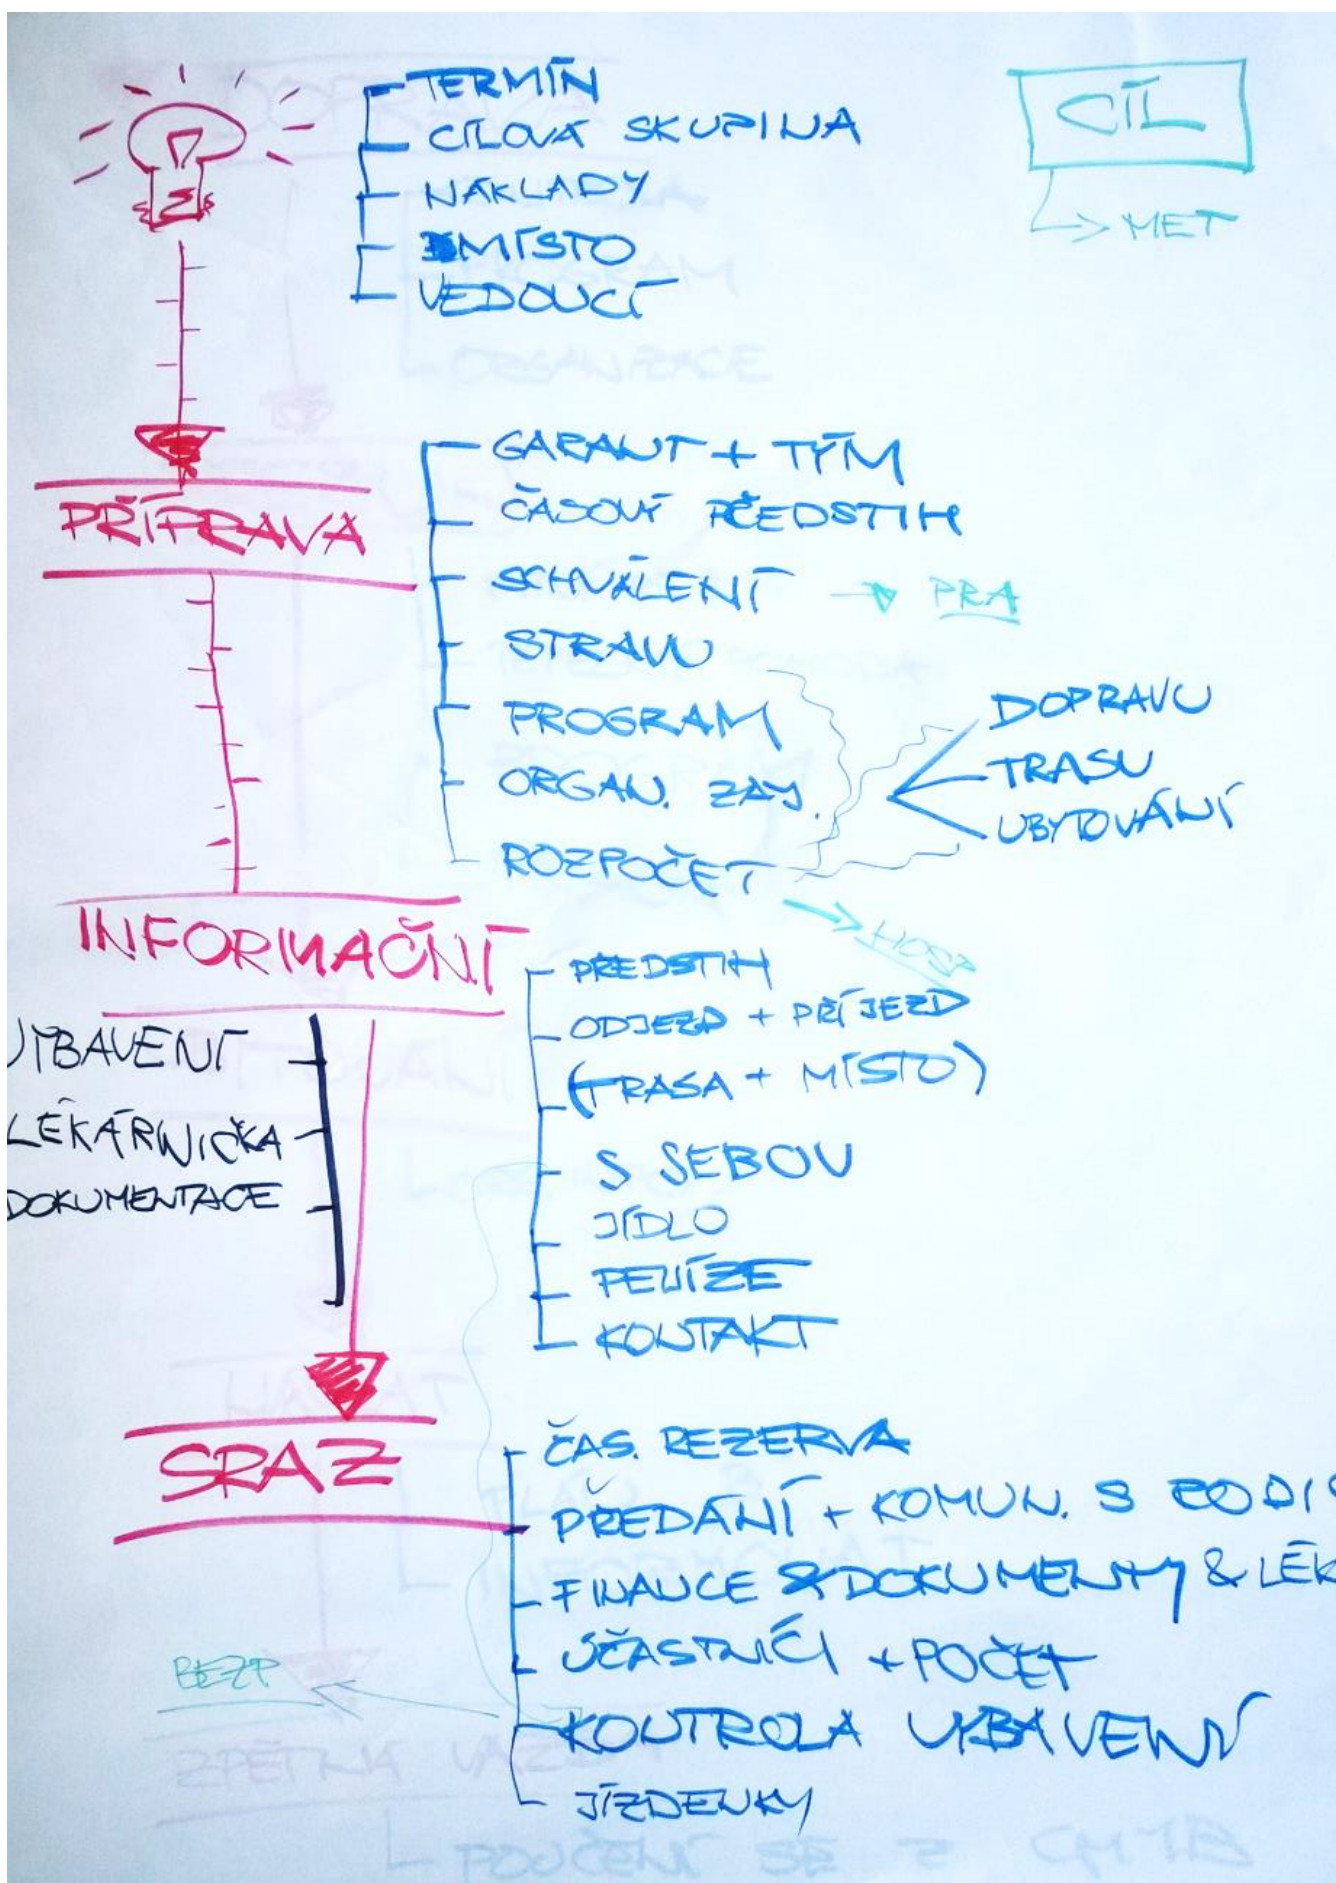 TERMÍN
CÍLOVÁ SKUPINA
NÁKLADY
MÍSTO
VEDOUCÍ
CÍL
MET
PŘÍPRAVA
GARANT + TÝM
ČASOVÝ PŘEDSTIH
SCHVÁLENÍ → PRA
STRAVU
PROGRAM
ORGAN. ZAJ.
ROZPOČET
DOPRAVU
TRASU
UBYTOVÁNÍ
HOSP
INFORMAČNÍ
VYBAVENÍ
LÉKÁRNIČKA
DOKUMENTACE
PŘEDSTIH
ODJEZD + PŘÍJEZD
(TRASA + MÍSTO)
S SEBOU
JÍDLO
PENÍZE
KONTAKT
SRAZ
ČAS. REZERVA
PŘEDÁNÍ + KOMUN. S RODI
FINANCE & DOKUMENTY & LÉK
ÚČASTNÍCI + POČET
KONTROLA VYBAVENÍ
JÍZDENKY
BEZP
ORGANIZACE
ZPĚTNÁ VAZBA
POUČENÍ SE Z CHYB